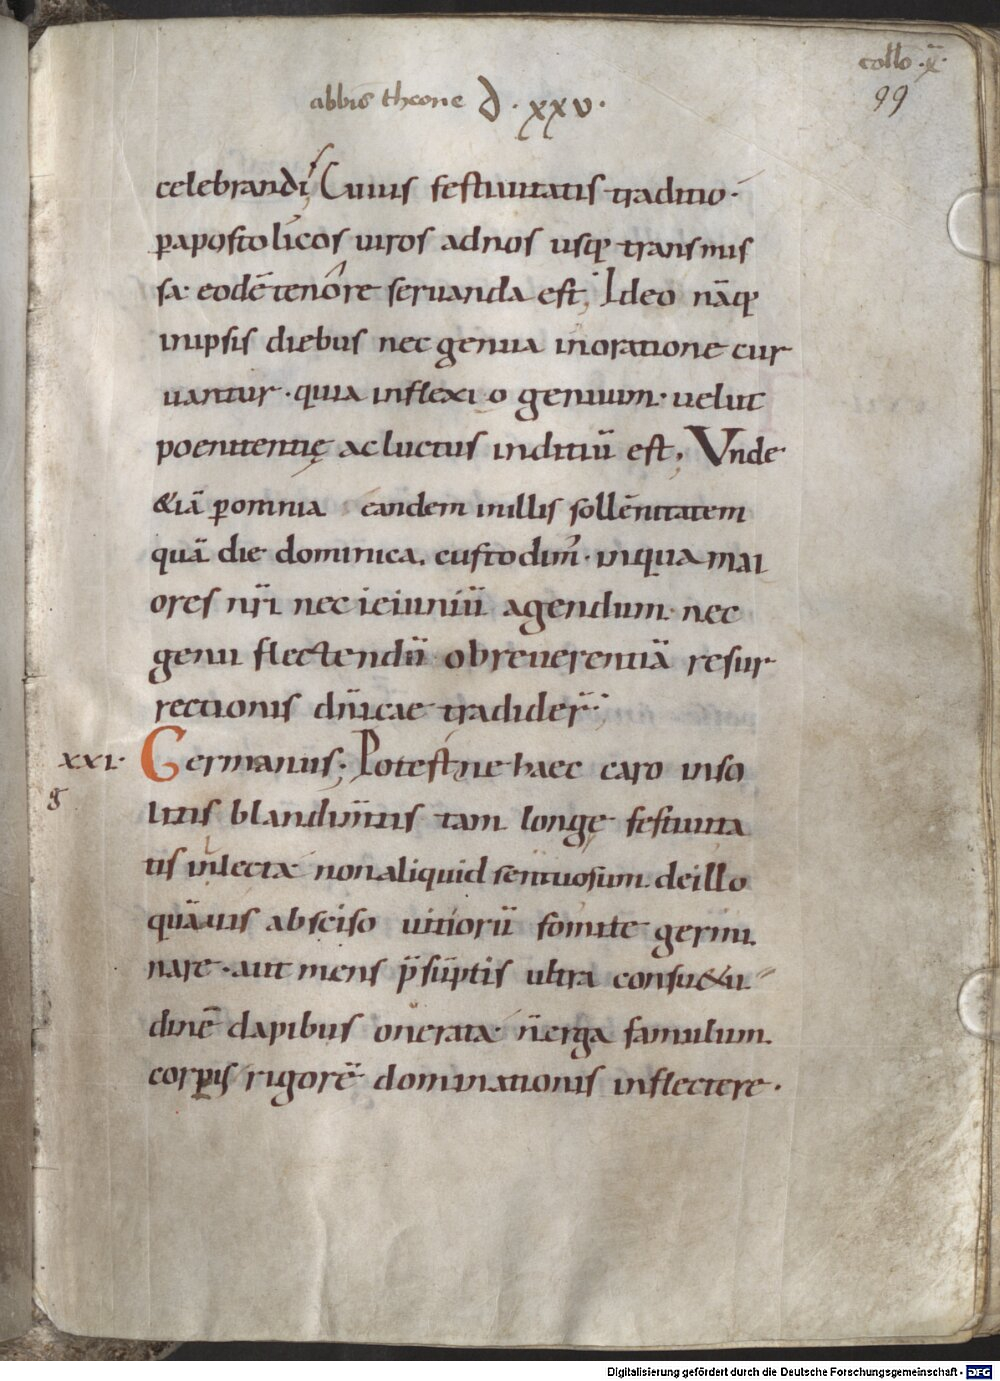 collo · x̄ ·
99
abbis̄ theone D · xxv ·
celebrandi; Cuius festiuitatis traditio ·
p̱ apostolicos uiros adnos usq; transmis
sa · eodē tenore seruanda est; Ideo nāq;
inipsis diebus nec genua inoratione cur
uantur · quia inflexio genuum · uelut
poenitentię ac luctus inditiū est; Vnde
&iā p̱ omnia eandem inillis sollēnitatem
quā die dominica. custodim᾿ · inqua mai
ores nr̄i nec ieiuniū agendum · nec
genu flectendū obreuerentiā resur
rectionis dn̄icae tradider̄ ·
xxi · Germanus; Potestne haec caro inso
g
litis blandim̄tis tam longę festiuita
tis inlecta non aliquid sentuosum deillo
quāuis absciso uitiorū fomite germi
nare · aut mens p̄sūptis ultra consu&u
dinē dapibus onerata · n̄ erga famulum
corp̱is rigorē dominationis inflectere ·
Digitalisierung gefördert durch die Deutsche Forschungsgemeinschaft - DFG